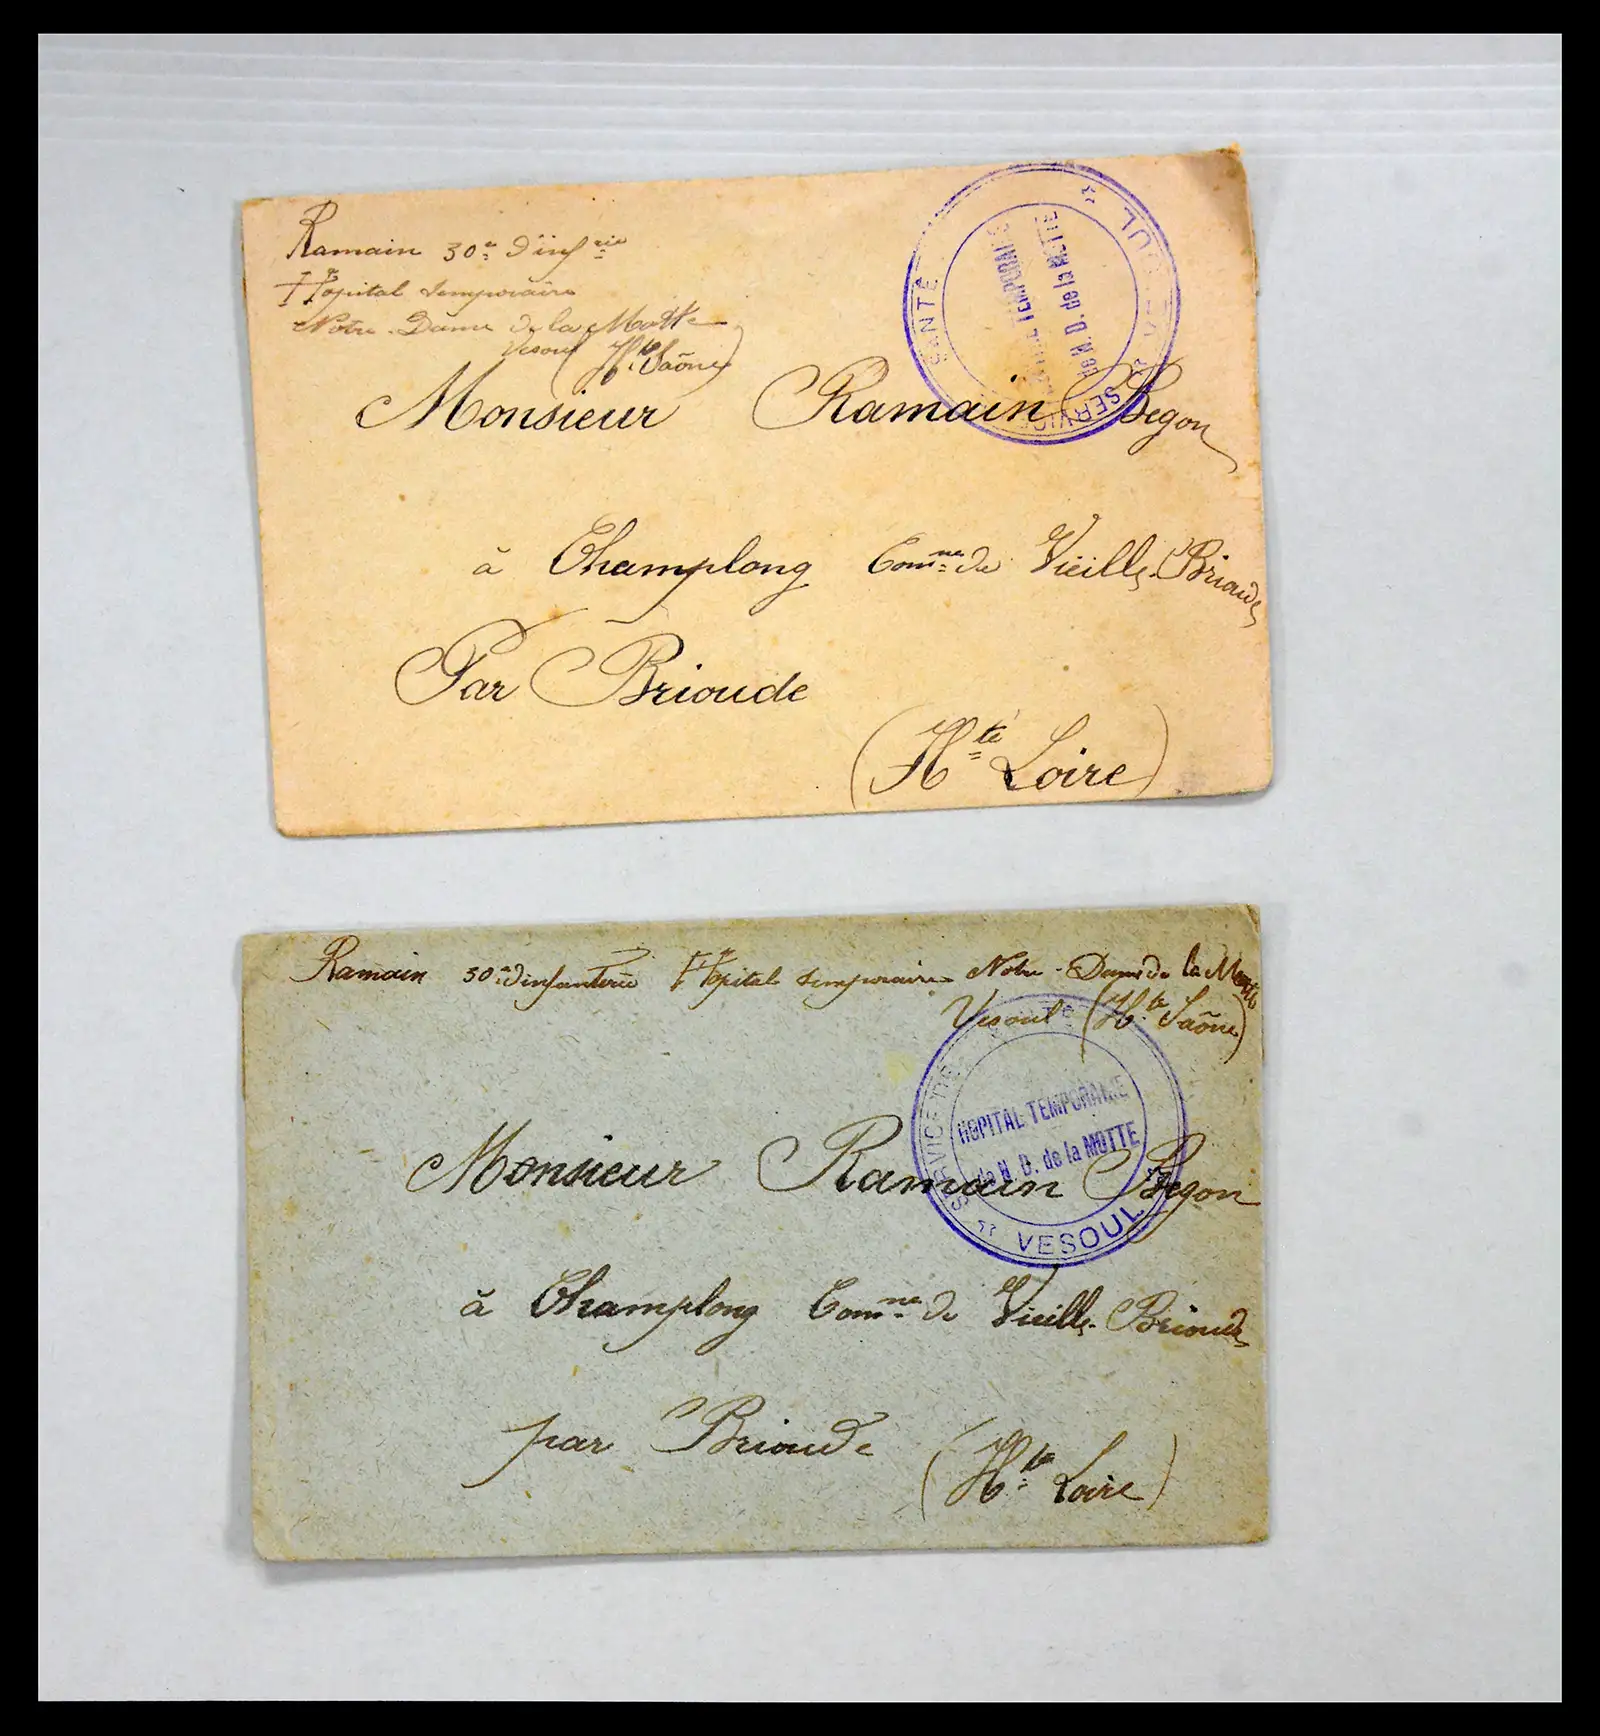 Ramain 30e d'infrie
Hôpital temporaire
Notre-Dame de la Motte
Vesoul (Hte Saône)
SERVICE SANTÉ VESOUL
TEMPORAIRE
de N. D. de la MOTTE
Monsieur Ramain Begon
à Champlong Comne de Vieille-Brioude
Par Brioude
(Hte Loire)
Ramain 30e d'infanterie Hôpital temporaire Notre-Dame de la Motte
Vesoul (Hte Saône)
SERVICE DE VESOUL
HOPITAL TEMPORAIRE
de N. D. de la MOTTE
Monsieur Ramain Begon
à Champlong Comne de Vieille-Brioude
par Brioude
(Hte Loire)